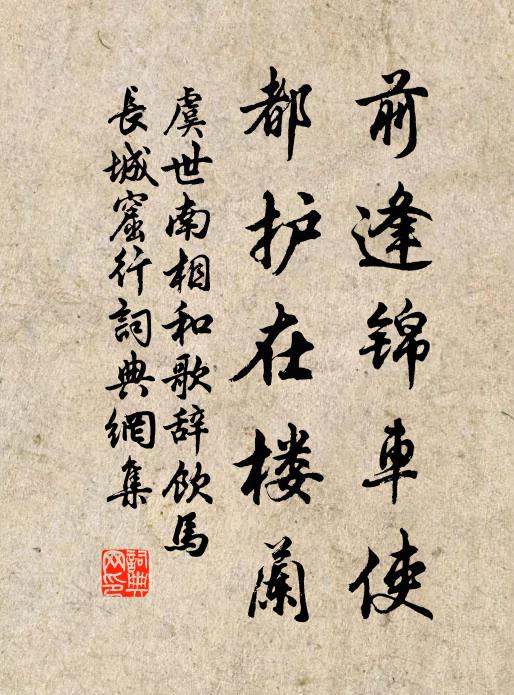 前逢锦車使
都护在楼蘭
虞世南相和歌辞飲馬
長城窟行詞典網集
詞典
网印